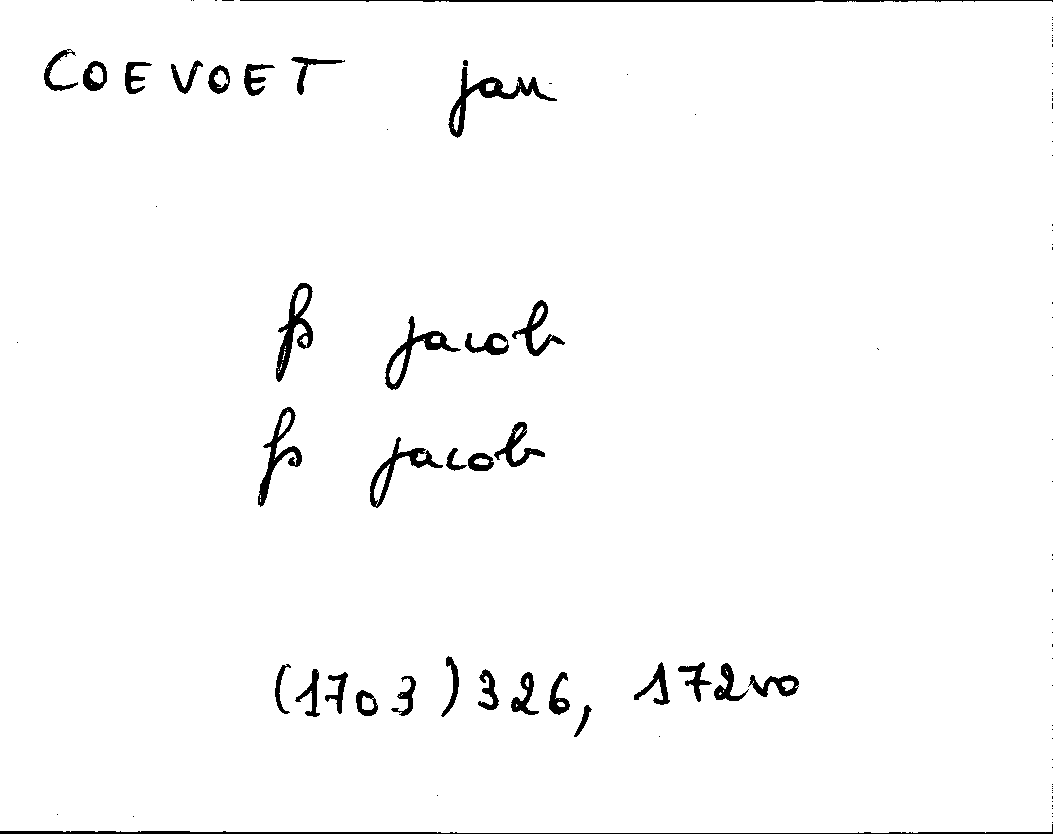 COEVOET jan
fs jacob
fs jacob
(1703) 326, 172vo